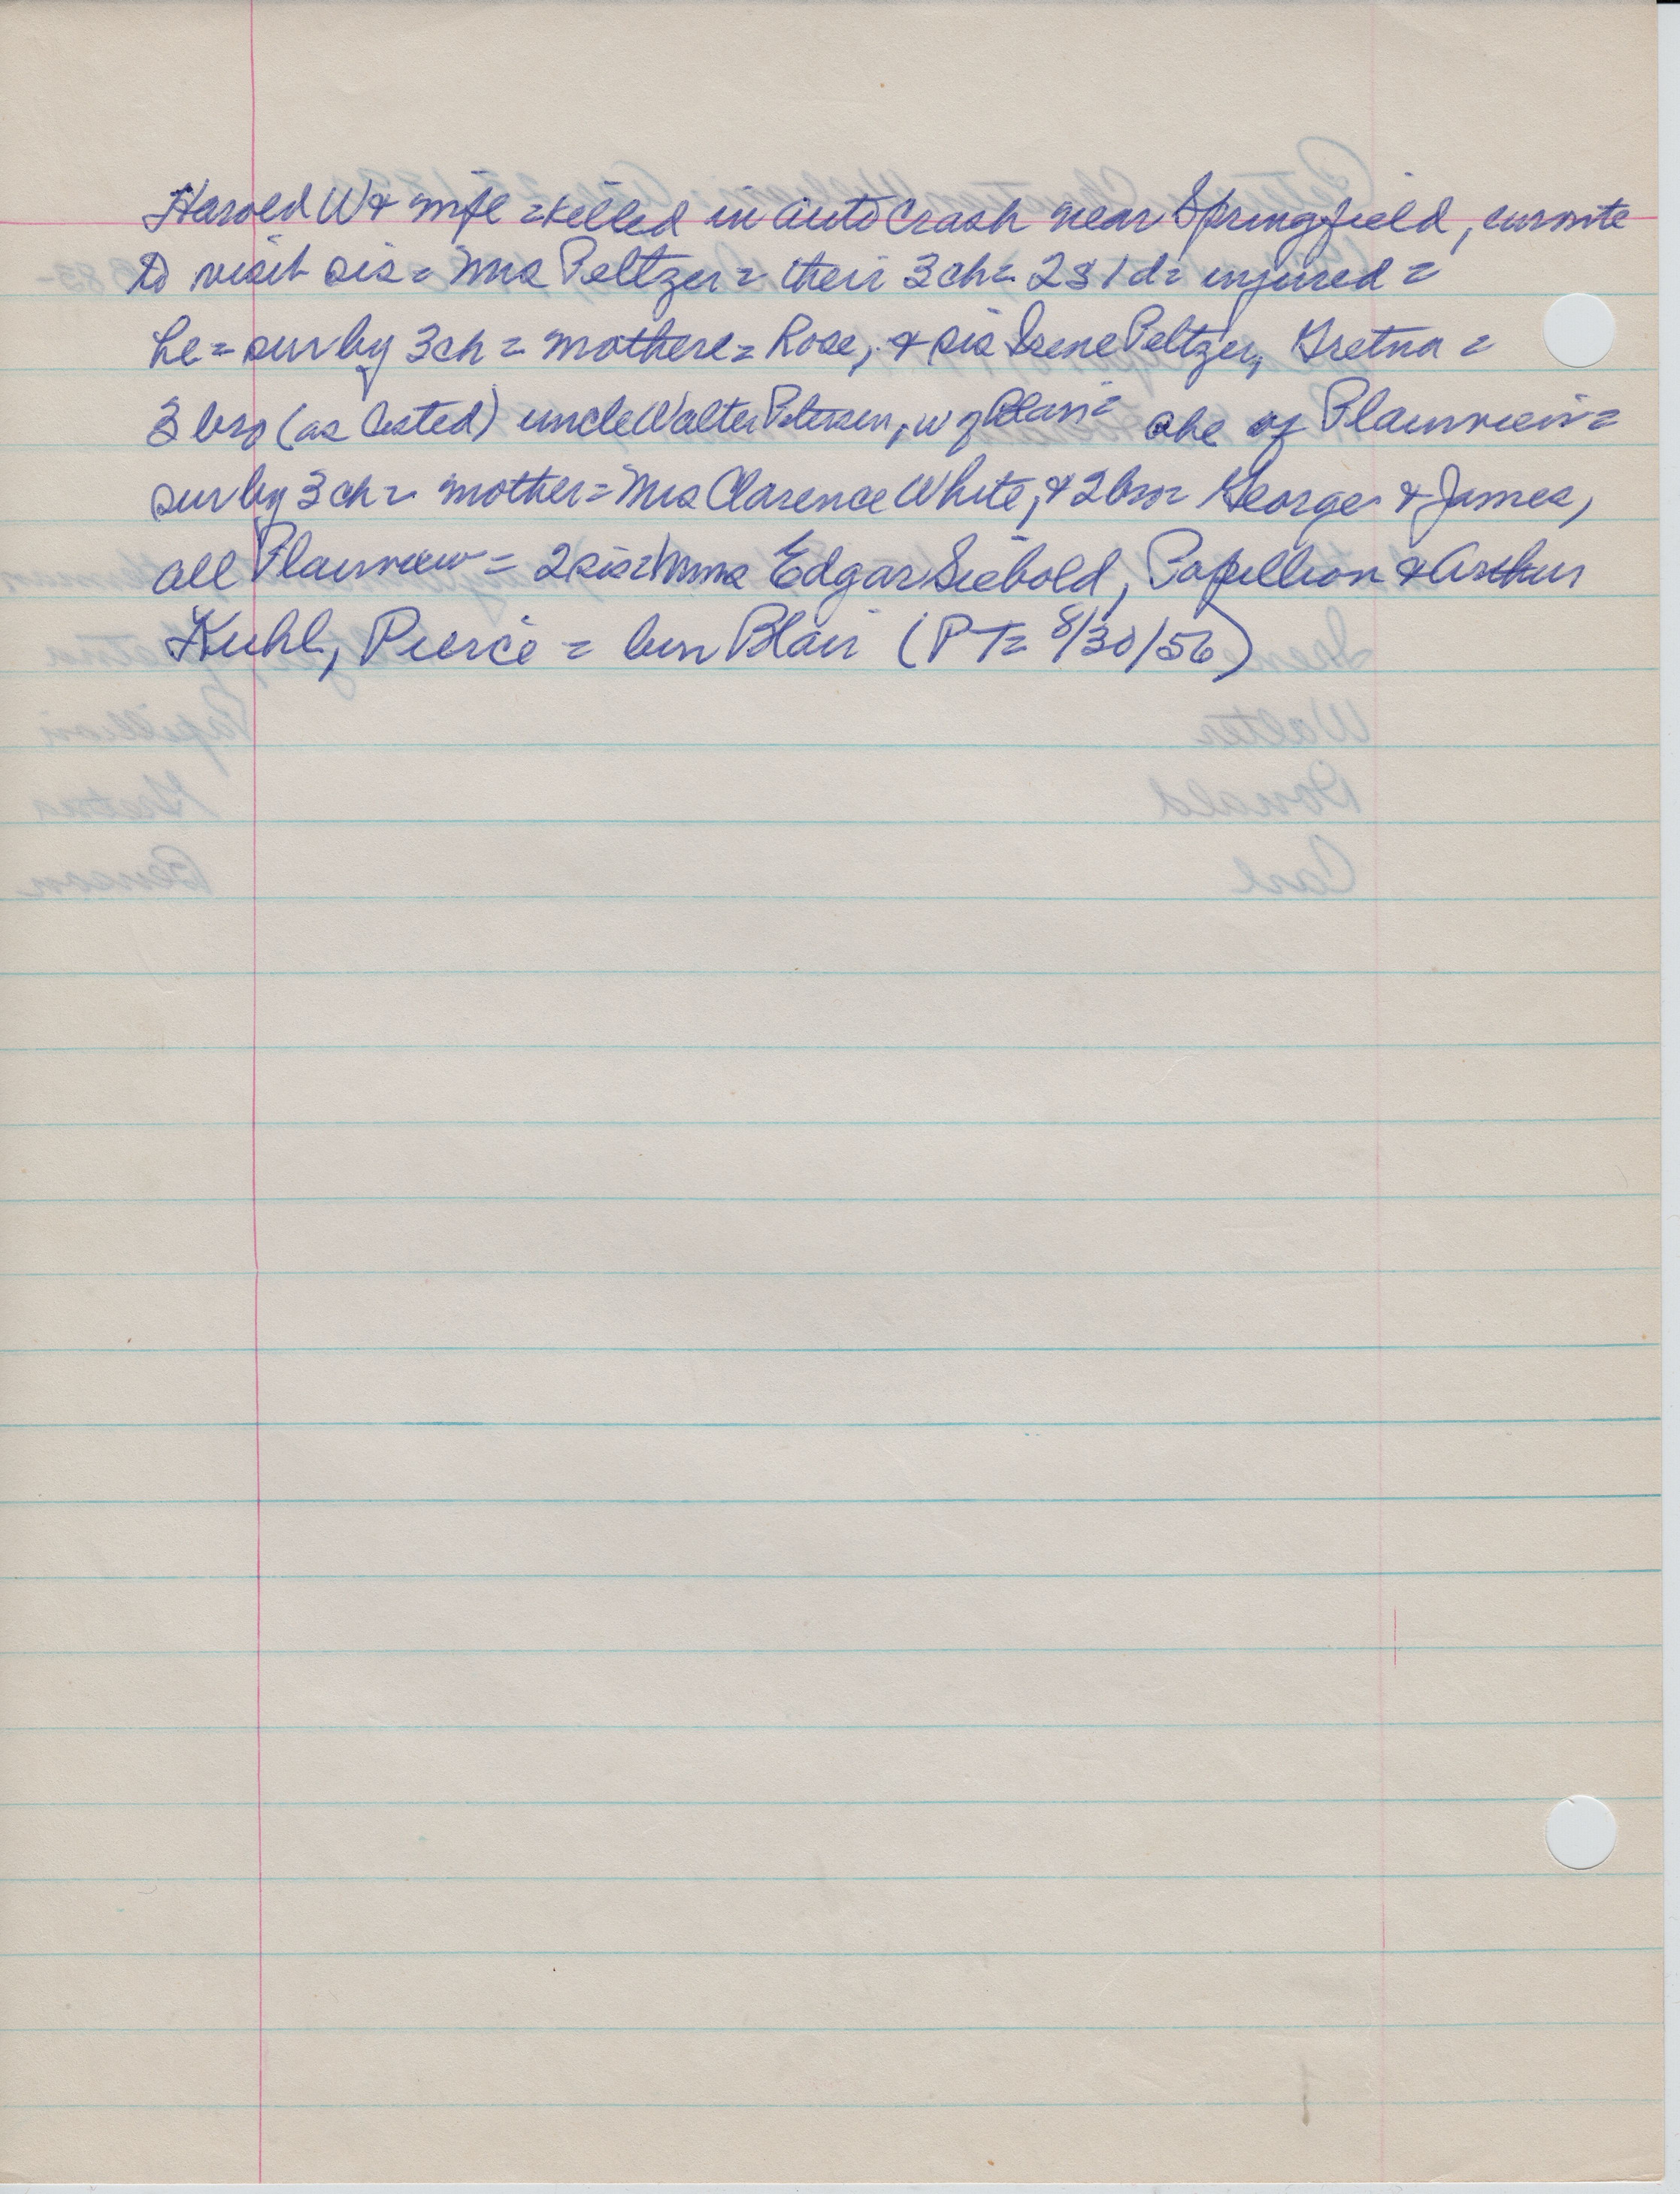 Harold W & wife = killed in auto crash near Springfield, enroute
to visit sis = Mrs Peltzer = their 3 ch = 2s 1d = injured =
he = sur by 3 ch = mother = Rose, & sis Irene Peltzer, Gretna =
3 bro (as listed) uncle Walter Petersen, w of Blair = she of Plainview =
sur by 3 ch = mother = Mrs Clarence White, & 2 bro = George & James,
all Plainview = 2 sis = Mmes Edgar Siebold, Papillion & Arthur
Kuhl, Pierce = bur Blair (PT = 8/30/56)
Irene
Walter Papillion
Donald Gretna
Carl Benson